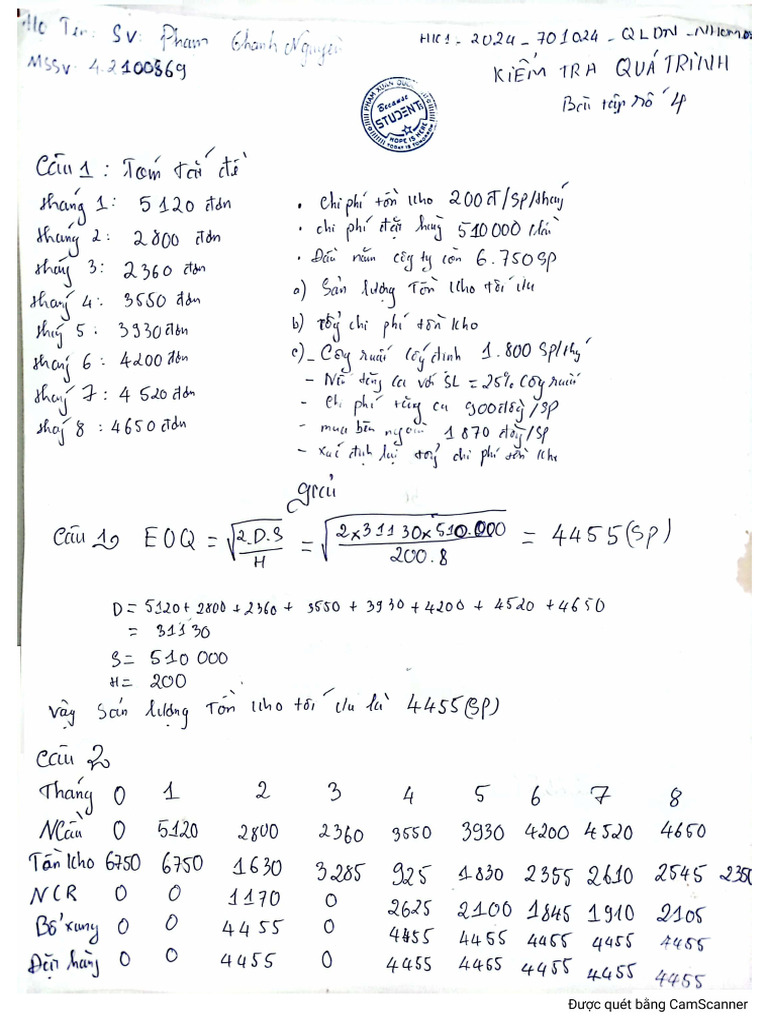 Họ Tên: SV: Phạm Thanh Nguyên
MSSV: 42100869
HK1_2024_701024_QLDN_NHOM05
KIỂM TRA QUÁ TRÌNH
Bài tập số 4
PHAM XUAN
Because
STUDENTS
HOPE IS HERE
TODAY IS TOMORROW
Câu 1: Tóm tắt đề
tháng 1: 5120 đơn
tháng 2: 2800 đơn
tháng 3: 2360 đơn
tháng 4: 3550 đơn
tháng 5: 3930 đơn
tháng 6: 4200 đơn
tháng 7: 4520 đơn
tháng 8: 4650 đơn
• Chi phí tồn kho 200đ/SP/tháng
• chi phí đặt hàng 510000 /lần
• Đầu năm công ty còn 6.750 SP
a) Sản lượng Tồn kho tối ưu
b) Tổng chi phí tồn kho
c) - Công suất cố định 1.800 SP/tháng
- Nếu tăng ca với SL = 25% công suất
- Chi phí tăng ca 900 đồng/SP
- mua bên ngoài 1870 đồng/SP
- xác định lại tổng chi phí tồn kho
Giải
Câu 1) EOQ = √(2.D.S / H) = √(2x31130x510.000 / 200.8) = 4455 (SP)
D = 5120 + 2800 + 2360 + 3550 + 3930 + 4200 + 4520 + 4650
= 31130
S = 510 000
H = 200
Vậy Sản lượng Tồn kho tối ưu là 4455 (SP)
Câu 2
Tháng 0 1 2 3 4 5 6 7 8
NCầu 0 5120 2800 2360 3550 3930 4200 4520 4650
Tồn kho 6750 6750 1630 3285 925 1830 2355 2610 2545 2350
NCR 0 0 1170 0 2625 2100 1845 1910 2105
Bổ xung 0 0 4455 0 4455 4455 4455 4455 4455
Đặt hàng 0 0 4455 0 4455 4455 4455 4455 4455
Được quét bằng CamScanner